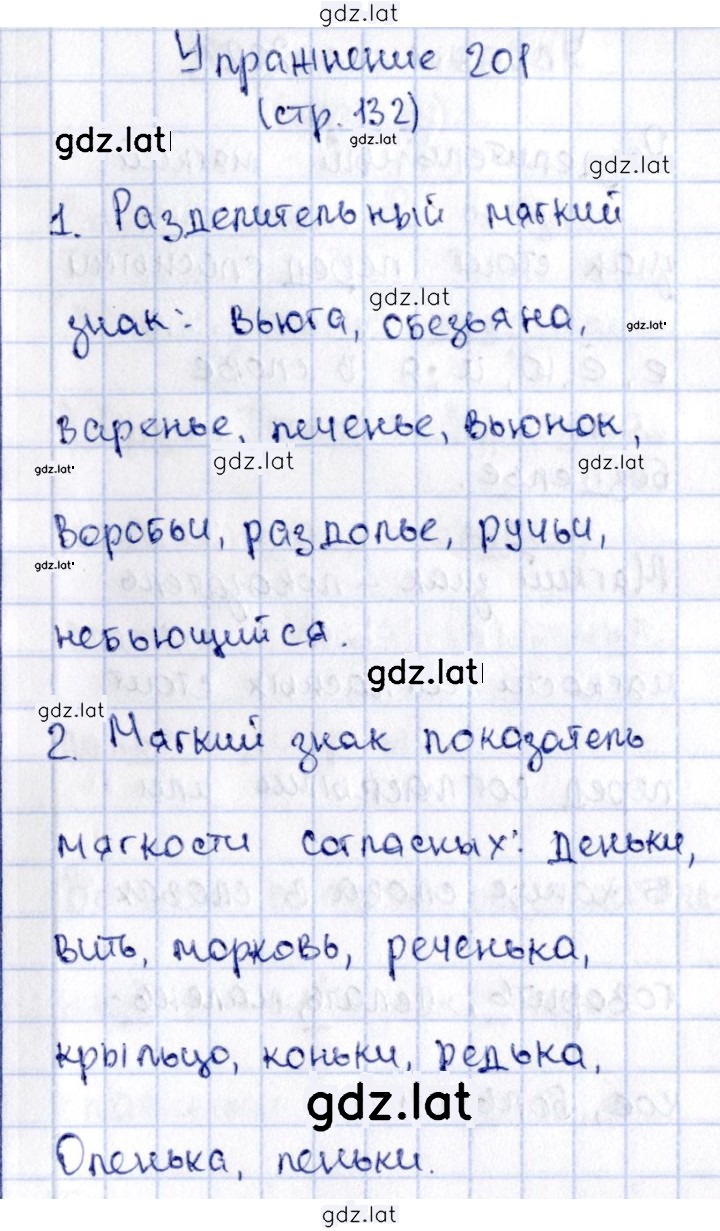 gdz.lat
Упражнение 201
(стр. 132)
gdz.lat
gdz.lat
gdz.lat
1. Разделительный мягкий
gdz.lat
знак: вьюга, обезьяна,
gdz.lat
варенье, печенье, вьюнок,
gdz.lat
gdz.lat
gdz.lat
воробьи, раздолье, ручьи,
gdz.lat
небьющийся.
gdz.lat
gdz.lat
2. Мягкий знак показатель
мягкости согласных: деньки,
вить, морковь, реченька,
крыльцо, коньки, редька,
gdz.lat
Оленька, пеньки.
gdz.lat